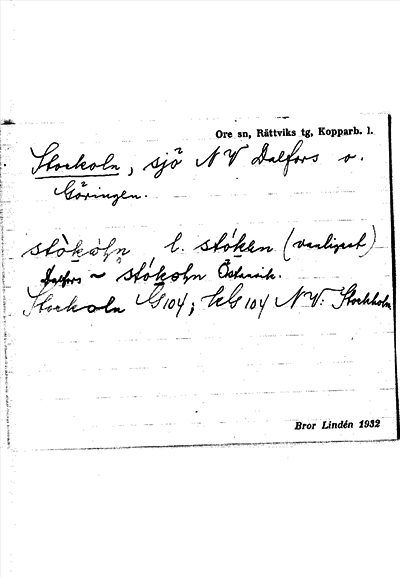 Ore sn, Rättviks tg, Kopparb. l.
Stockoln, sjö NV Dalfors o.
Göringen.
stòkòhn l. stóken (vanligast)
Dalfors ~ stókohn Östanvik.
Stockoln G104; kG 104 NV: Stockholn
Bror Lindén 1932